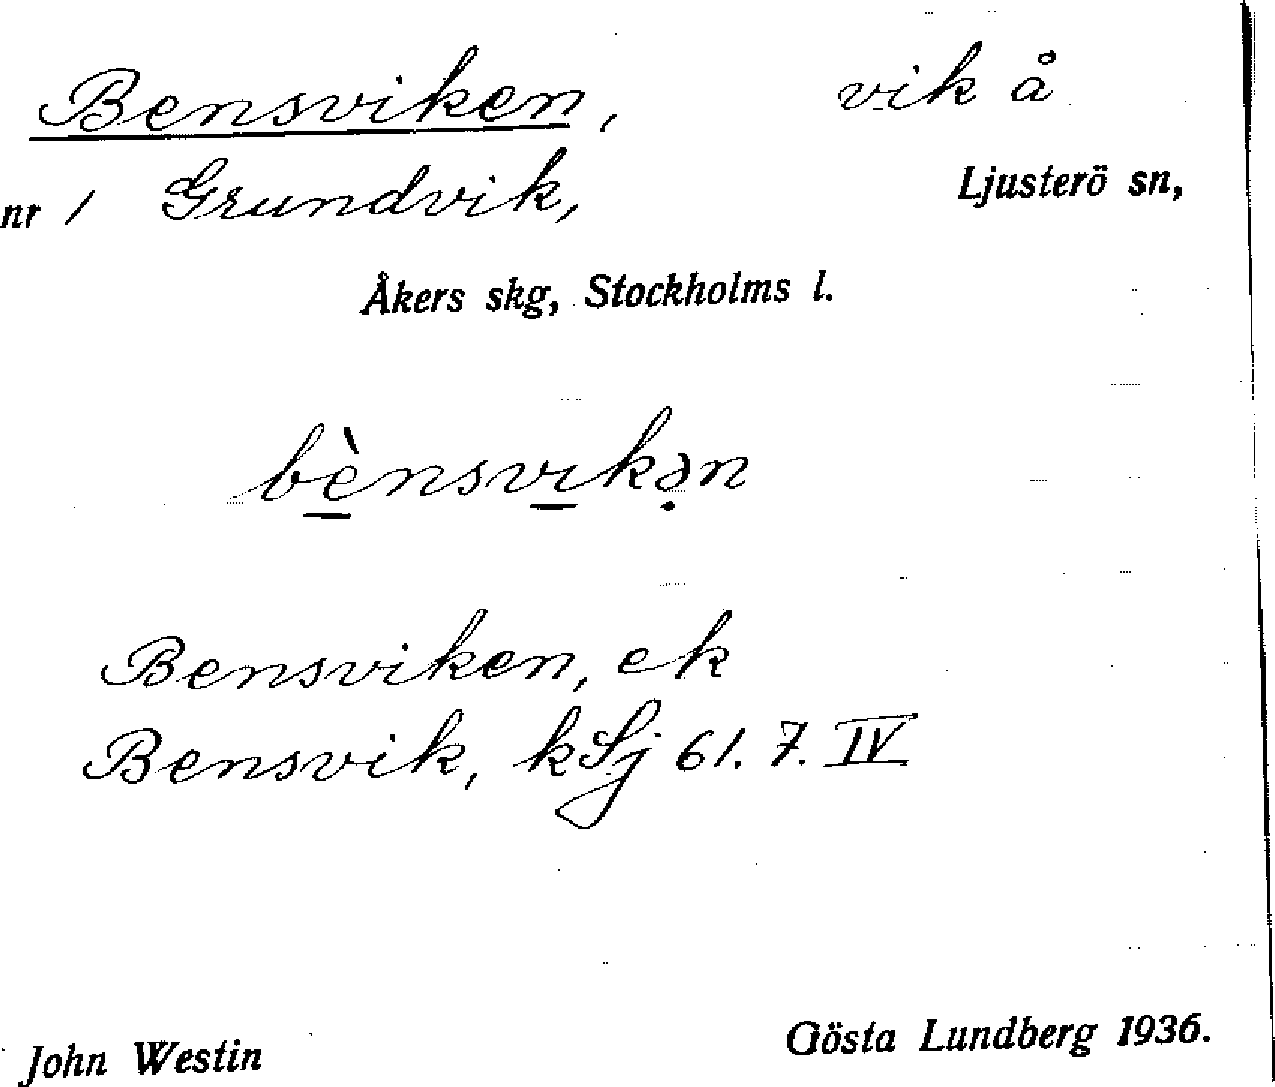 Bensviken, vik å
nr 1 Grundvik, Ljusterö sn,
Åkers skg, Stockholms l.
bènsvikən
Bensviken, ek
Bensvik, kSj 61. 7. IV
John Westin Gösta Lundberg 1936.